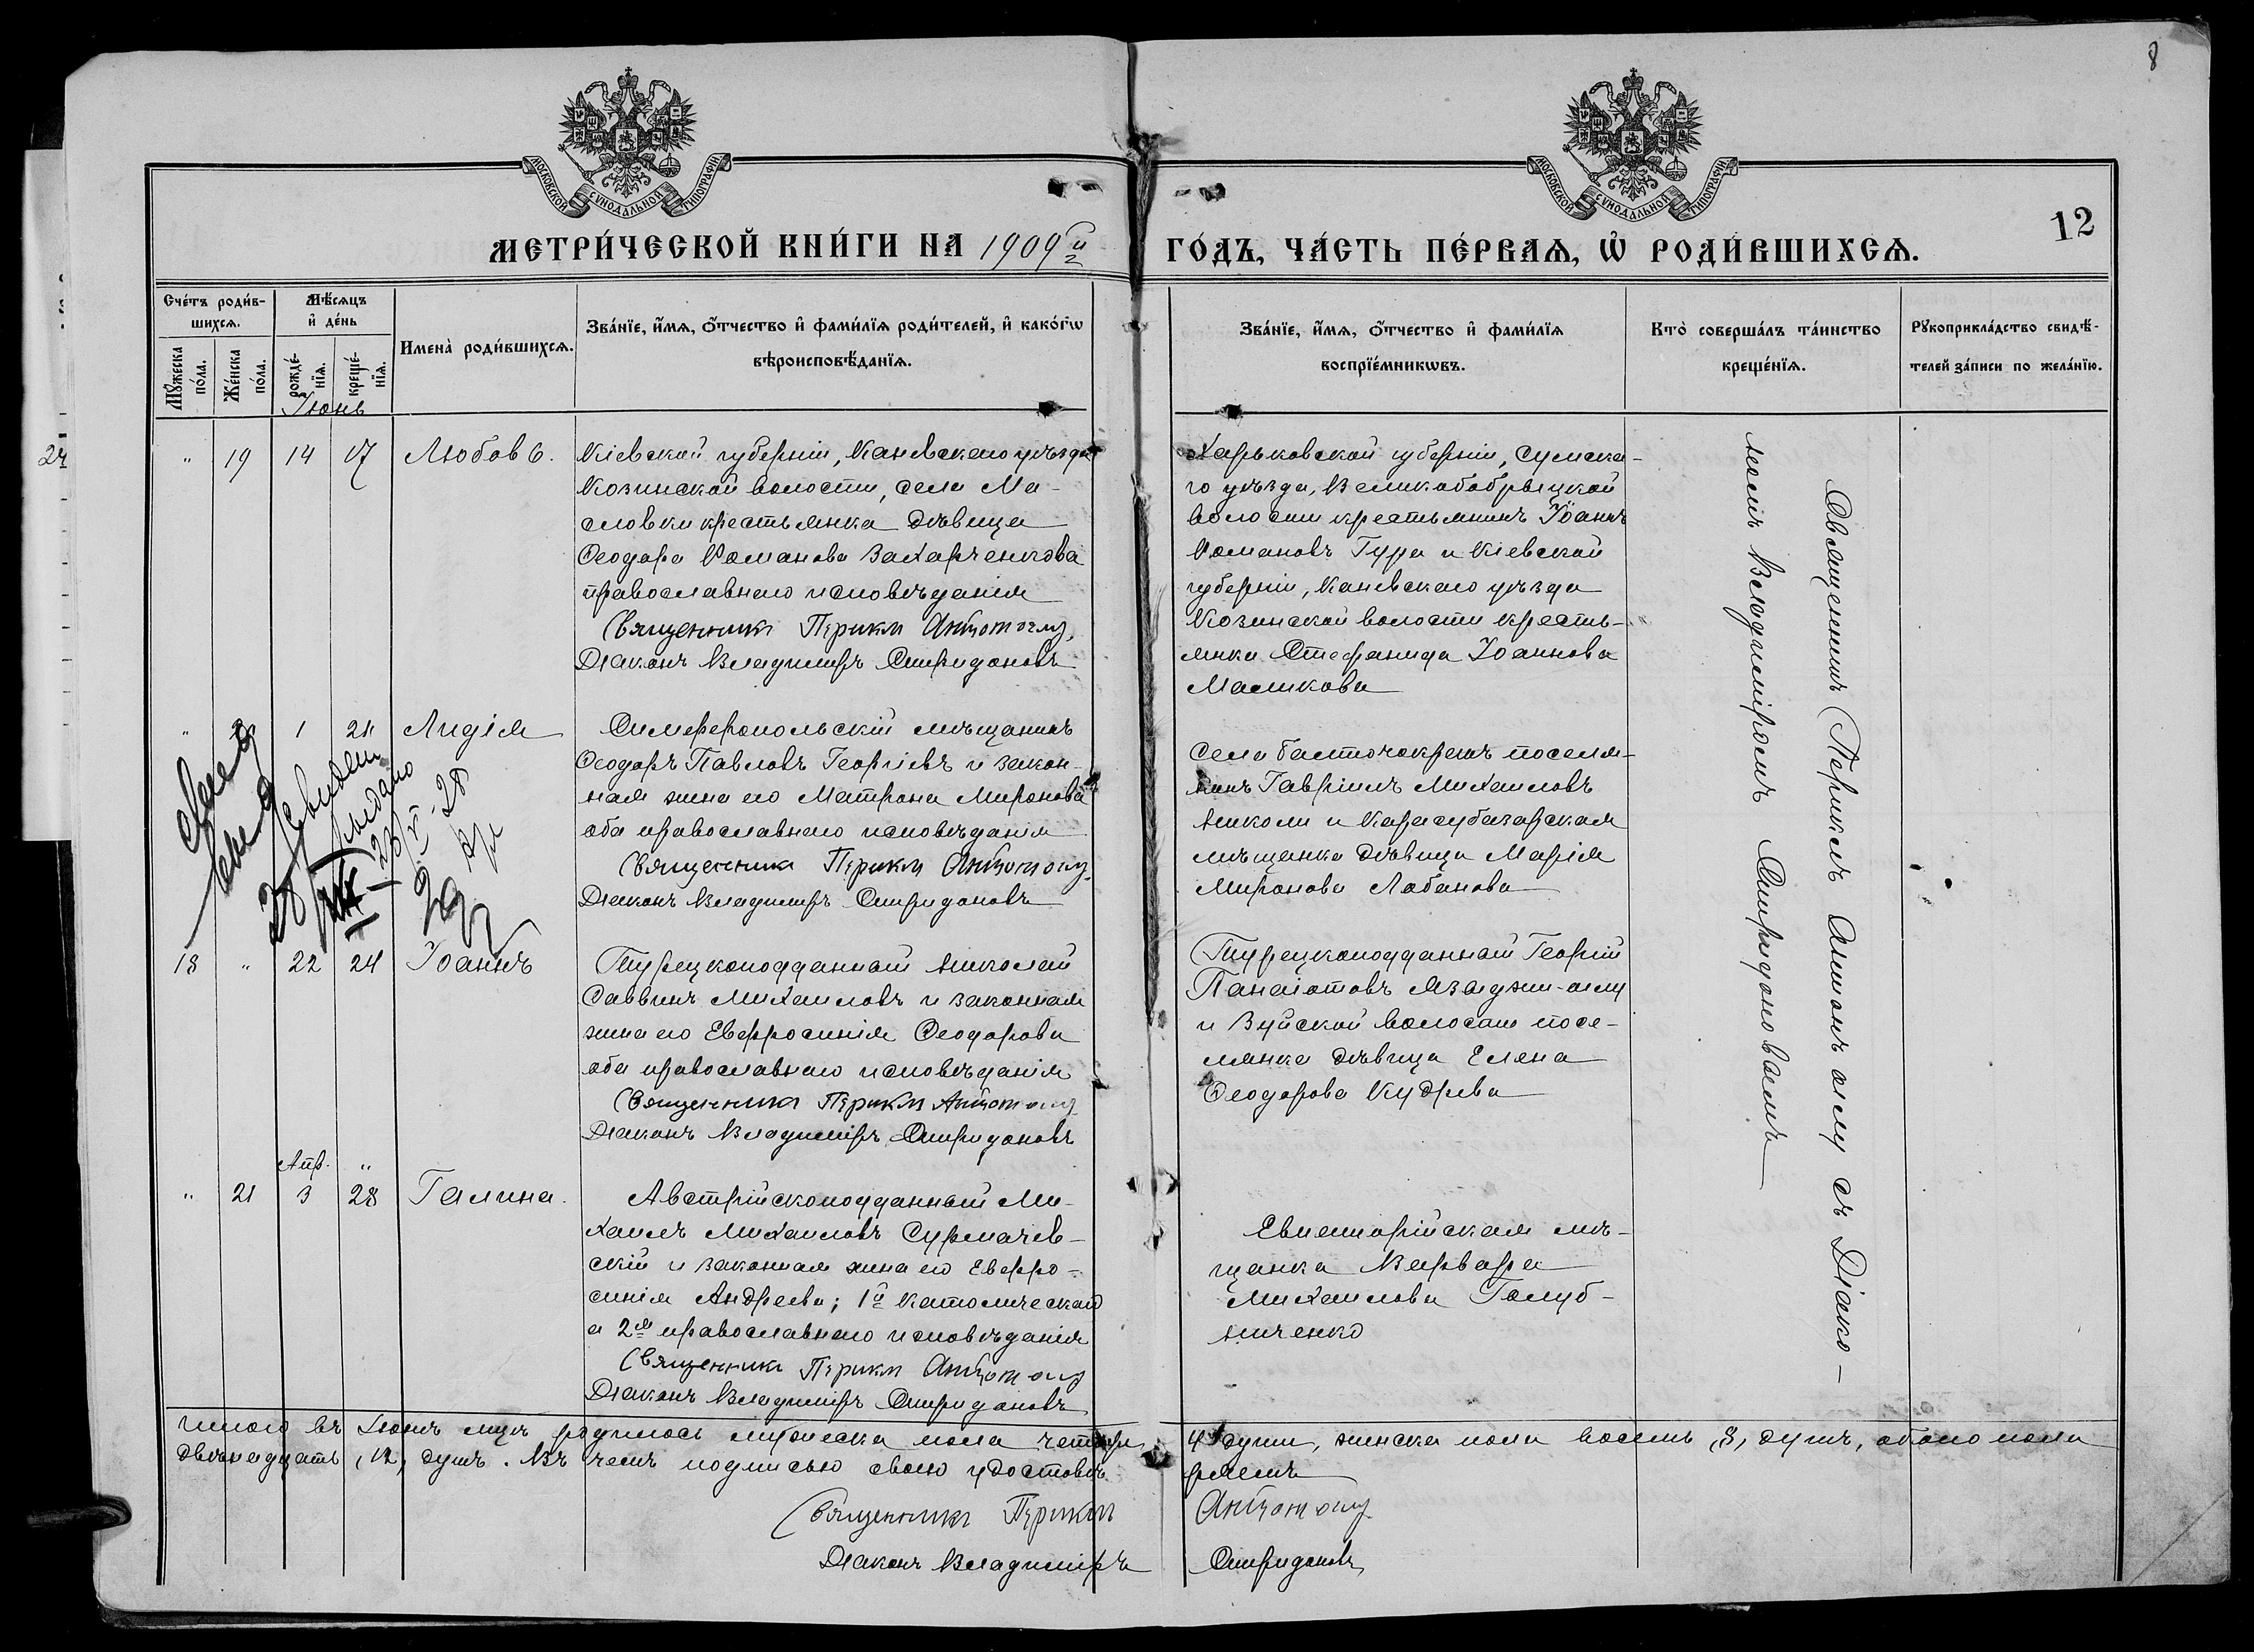 8
12
МОСКОВСКОЙ СѴНОДАЛЬНОЙ ТИПОГРАФІИ
МОСКОВСКОЙ СѴНОДАЛЬНОЙ ТИПОГРАФІИ
МЕТРИ́ЧЕСКОЙ КНИ́ГИ НА 1909й ГО́ДЪ, ЧА́СТЬ ПЕ́РВАѦ, Ѡ҆ РОДИ́ВШИХСѦ.
Сче́тъ роди́в-
шихсѧ.
Мꙋ́жеска
по́ла.
Же́нска
по́ла.
Мѣ́сѧцъ
и҆ де́нь
рожде́-
нїѧ.
креще́-
нїѧ.
Имена̀ роди́вшихсѧ.
Зва́нїе, и҆́мѧ, ѻ҆́тчество и҆ фами́лїѧ роди́телей, и҆ како́гѡ
вѣроисповѣ́данїѧ.
Зва́нїе, и҆́мѧ, ѻ҆́тчество и҆ фами́лїѧ
воспрїе́мникѡвъ.
Кто̀ соверша́лъ та́инство
креще́нїѧ.
Рꙋкоприкла́дство свидѣ́-
телей за́писи по жела́нїю.
Іюнь
24
" 19 14 17 Любовь.
Кіевской губерніи, Каневскаго уѣзда
Козинской волости, села Ма-
словки крестьянка дѣвица
Ѳеодора Романова Захарченкова
православнаго исповѣданія
Священникъ Периклъ
Діаконъ Владиміръ Спиридоновъ
Харьковской губерніи, Сумска-
го уѣзда, Великобобрицкой
волости крестьянинъ Іоаннъ
Романовъ Гура и Кіевской
губерніи, Каневскаго уѣзда
Козинской волости кресть-
янка Стефанида Іоаннова
Маликова
" 1 24 Лидія
Симферопольскій мѣщанинъ
Ѳеодоръ Павловъ Георгіевъ и закон-
ная жена его Матрона Миронова
оба православнаго исповѣданія
Священникъ Периклъ
Діаконъ Владиміръ Спиридоновъ
Села посель-
нинъ Гавріилъ Михаиловъ
Николи и Карасубазарская
мѣщанка дѣвица Марія
Миронова Лобанова
выдано
28
18 " 22 24 Іоаннъ
Турецкоподданный Николай
Саввинъ Михаиловъ и законная
жена его Евфросинія Ѳеодорова
оба православнаго исповѣданія
Священникъ Периклъ
Діаконъ Владиміръ Спиридоновъ
Турецкоподданный Георгій
Панаіотовъ Языджи-оглу
и Зуйской волости посе-
лянка дѣвица Елена
Ѳеодорова Кудрева
Апр. "
" 21 3 28 Галина.
Австрійскоподданный Ми-
хаилъ Михаиловъ Сурмачев-
скій и законная жена его Евфро-
синія Андреева; 1й католическаго
а 2я православнаго исповѣданія
Священникъ Периклъ
Діаконъ Владиміръ Спиридоновъ
Евпаторійская мѣ-
щанка Варвара
Михаилова Голуб-
ниченко
Священникъ Периклъ Антонъ оглу съ Діако-
номъ Владиміромъ Спиридоновымъ
Итого въ Іюнѣ мцѣ родилось мужеска пола четыре, 4 души, женска пола восемь, 8, душъ, обоего пола
двѣнадцать, 12, душъ. Въ чемъ подписью своею удостовѣ-
ряемъ
Священникъ Периклъ
Діаконъ Владиміръ Спиридоновъ